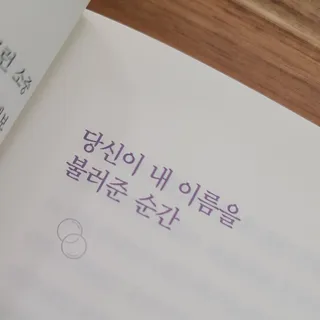 런 소중
당신이 내 이름을
불러준 순간